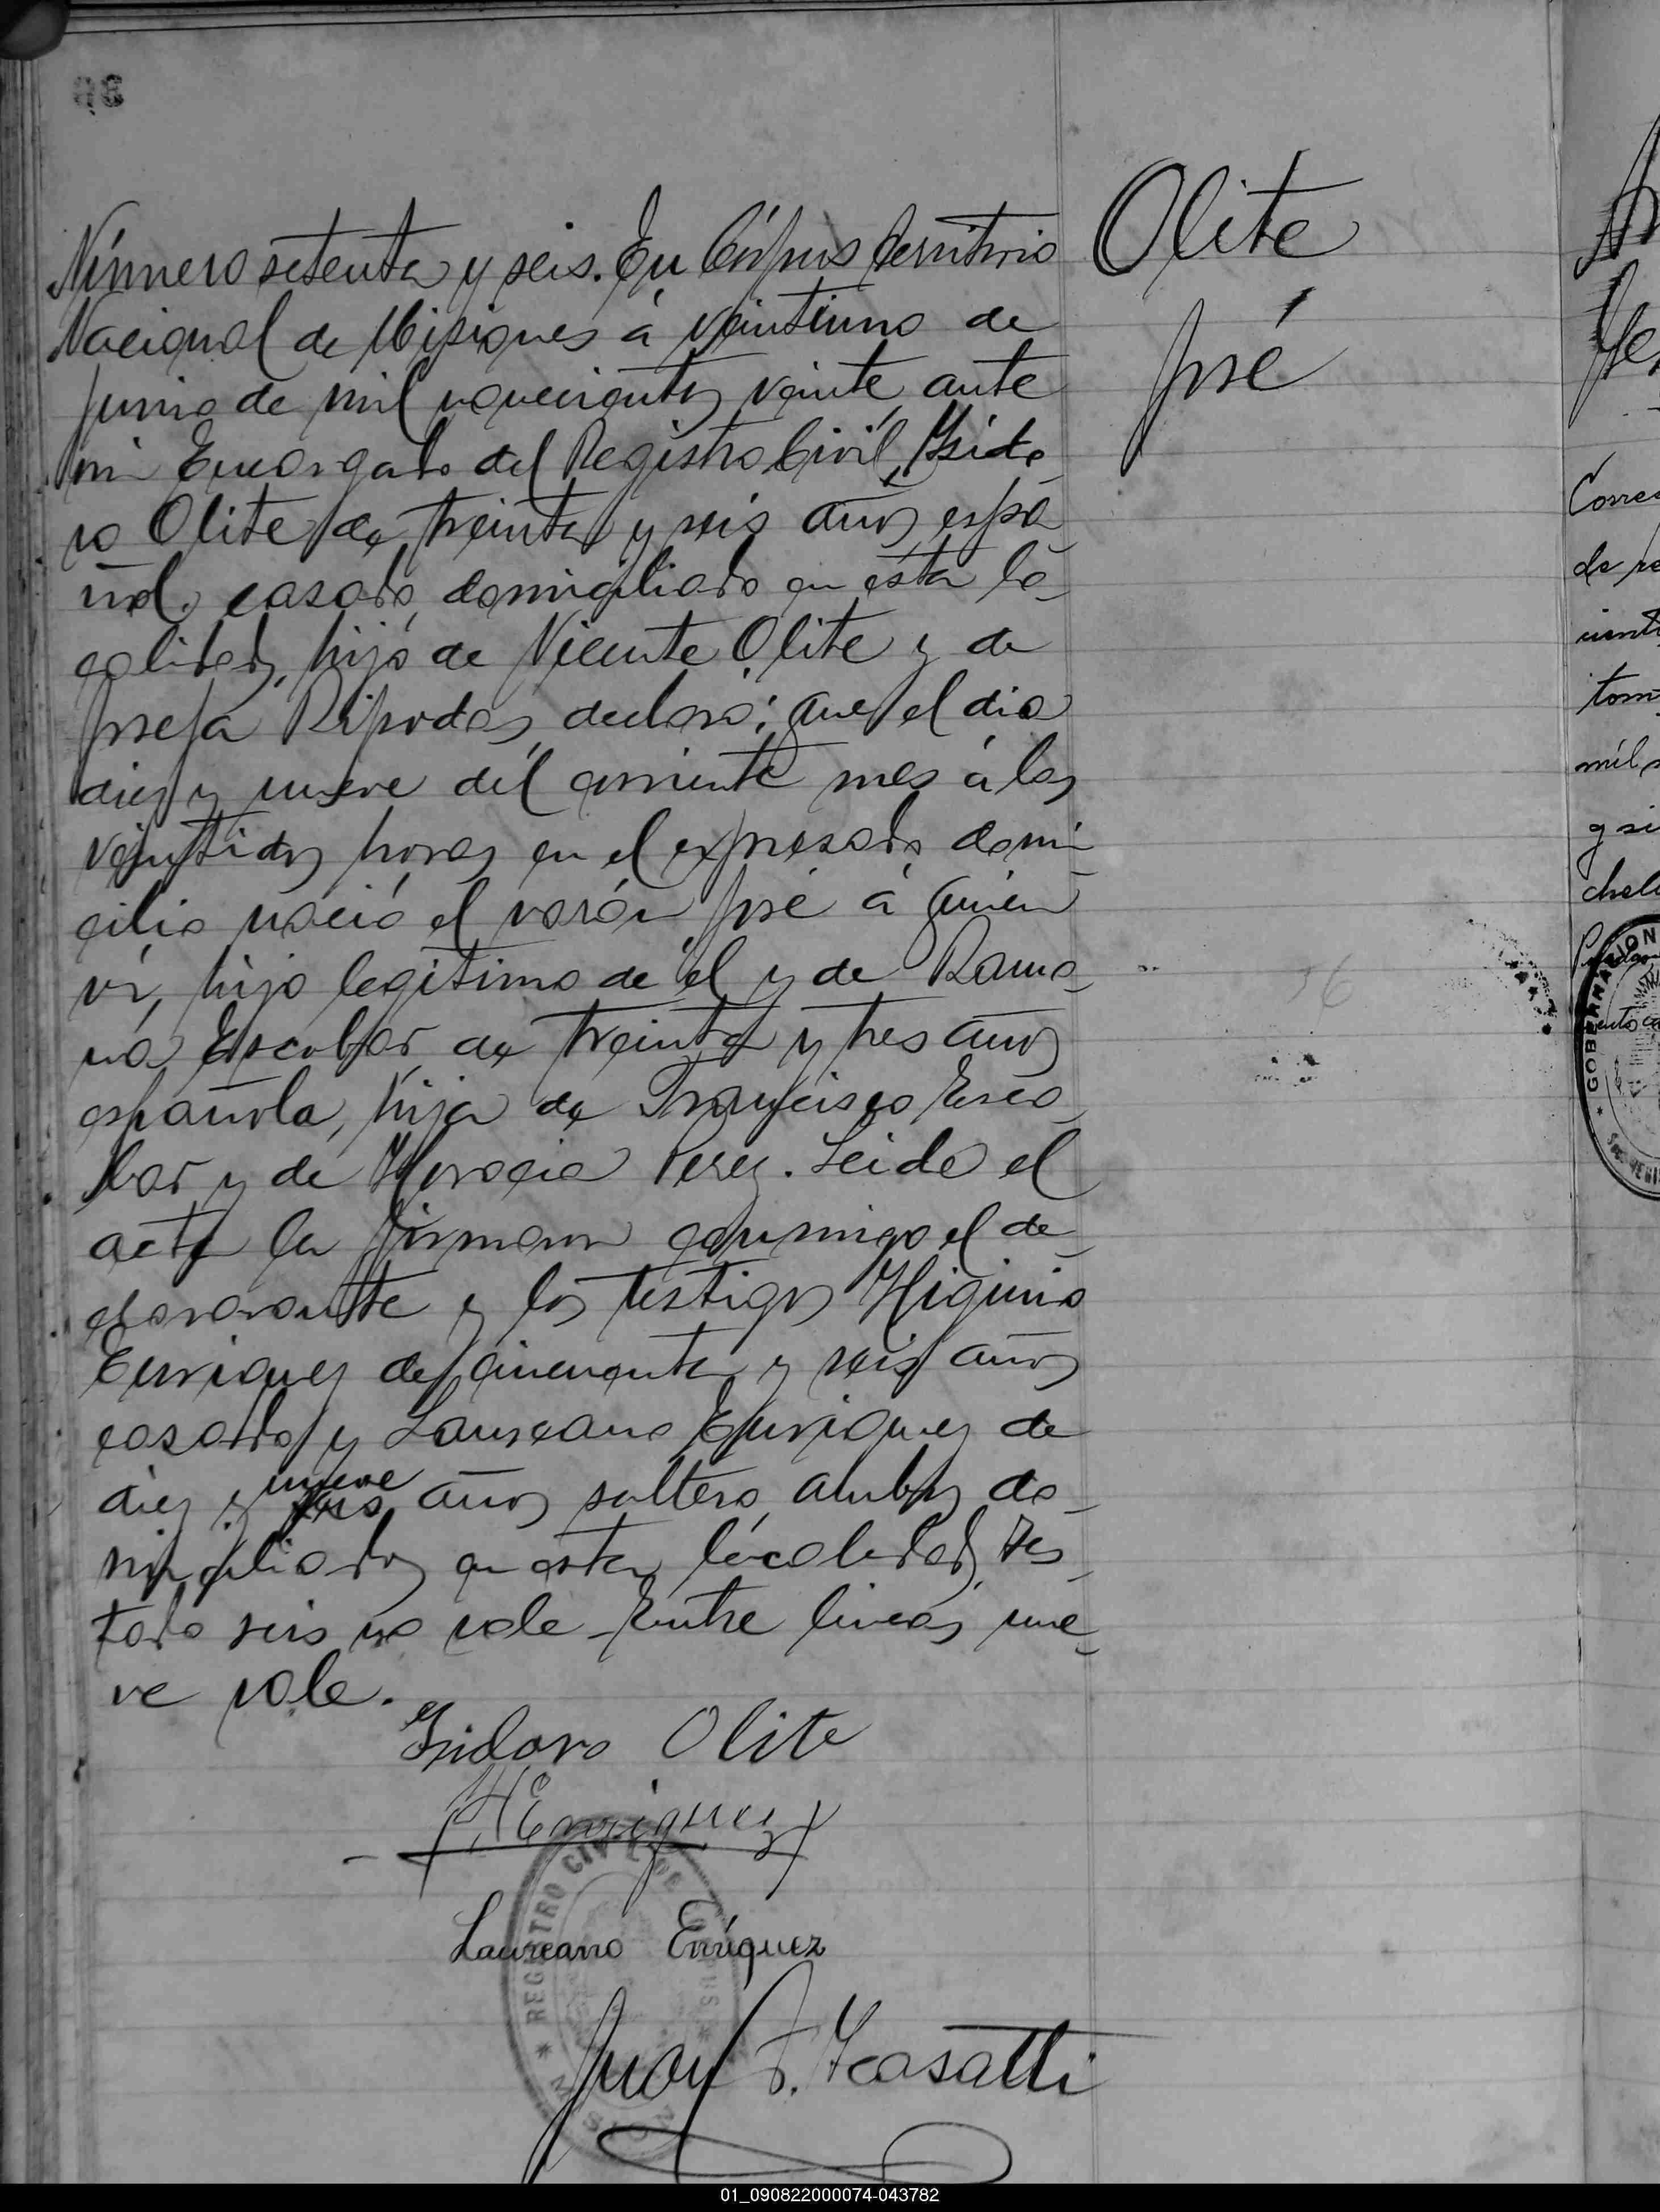 Olite
José
Número setenta y seis. En Córpus Territorio
Nacional de Misiones á veintiuno de
Junio de mil novecientos veinte ante
mi Encargado del Registro Civil, Isido_
ro Olite de treinta y seis años, espa_
ñol, casado, domiciliado en ésta lo_
calidad, hijo de Vicente Olite y de
Josefa Ripodas, declaró: que el dia
diez y nueve del corriente mes á las
veintidos horas en el expresado domi_
cilio nació el varón José á quien
ví, hijo legítimo de él y de Ramo_
na Escobar de treinta y tres años
española, hija de Francisco Esco_
bar y de Perez. Leida el
acta la firmaron conmigo el de_
clarante y los testigos Higinio
Enriquez de cincuenta y seis años
casado y Laureano Enriquez de
nueve
diez y seis años soltero, ambos do_
miciliados en esta localidad, Tes_
tado seis no vale _ Entre lineas nue_
ve vale.
Isidoro Olite
H Enriquez
Laureano Enríquez
REGISTRO CIVIL
Juan
76
GOBERNACION
01_090822000074-043782